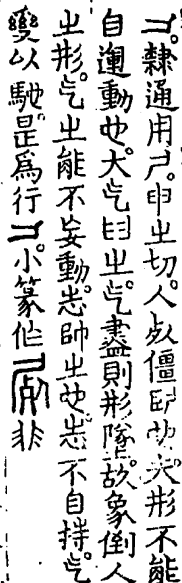 隸通用尸。申之切。人死僵臥也。夫形不能
自運動也。大气臼之。气盡則形隊。故象倒人
之形。气之能不妄動。志帥之也。志不自持。气
變以馳。是爲行。小篆作非